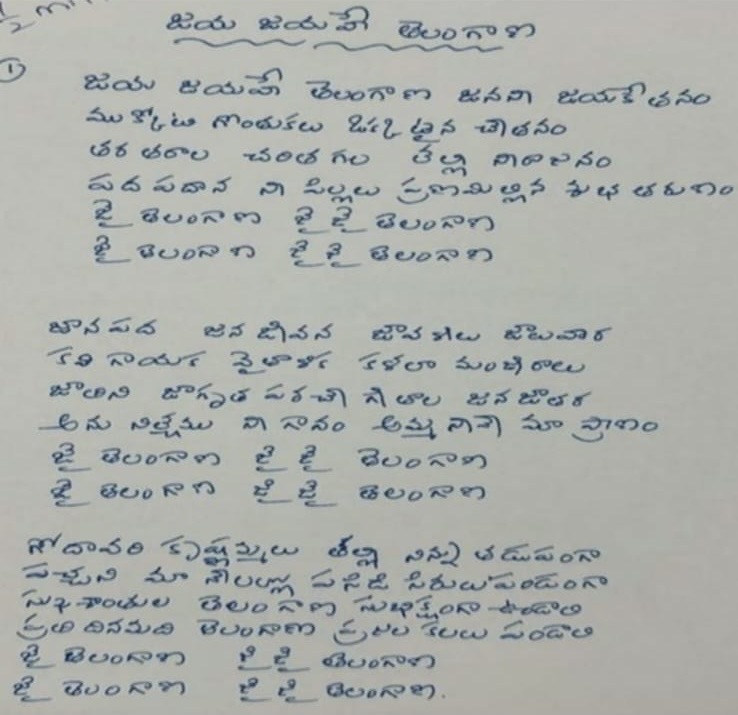 ½ min
జయ జయహే తెలంగాణ
① జయ జయహే తెలంగాణ జనని జయకేతనం
ముక్కోటి గొంతుకలు ఒక్కటైన చేతనం
తర తరాల చరిత గల తల్లీ నీరాజనం
పద పదాన నీ పిల్లలు ప్రణమిల్లిన శుభ తరుణం
జై తెలంగాణ జై జై తెలంగాణ
జై తెలంగాణ జై జై తెలంగాణ
జానపద జన జీవన జావళీలు జాలువార
కవి గాయక వైతాళిక కళలా మంజీరాలు
జాతిని జాగృత పరచే గీతాల జన జాతర
అను నిత్యము నీ గానం అమ్మ నీవే మా ప్రాణం
జై తెలంగాణ జై జై తెలంగాణ
జై తెలంగాణ జై జై తెలంగాణ
గోదావరి కృష్ణమ్మలు తల్లి నిన్ను తడుపంగా
పచ్చని మా నేలల్లో పసిడి సిరులు పండంగా
సుఖ శాంతుల తెలంగాణ సుభిక్షంగా ఉండాలి
ప్రతి దినమది తెలంగాణ ప్రజల కలలు పండాలి
జై తెలంగాణ జై జై తెలంగాణ
జై తెలంగాణ జై జై తెలంగాణ.